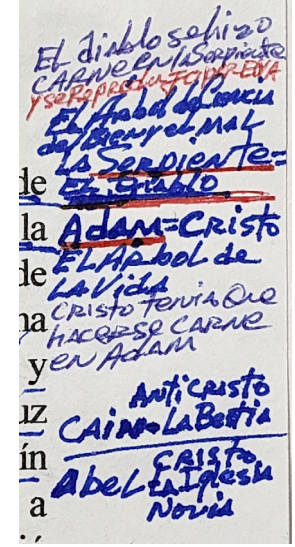 El diablo se hizo
CARNE EN la Serpiente
y se Reprodujo por EVA
El Arbol de ciencia
del Bien y el MAL
LA Serpiente=
de EL Diablo
la Adam=Cristo
de EL Arbol de
LA Vida
na Cristo Tenia Que
HACERSE CARNE
y en Adam
AntiCristo
uz CAin=La Bestia
ín Cristo
Abel=La Iglesia
a Novia